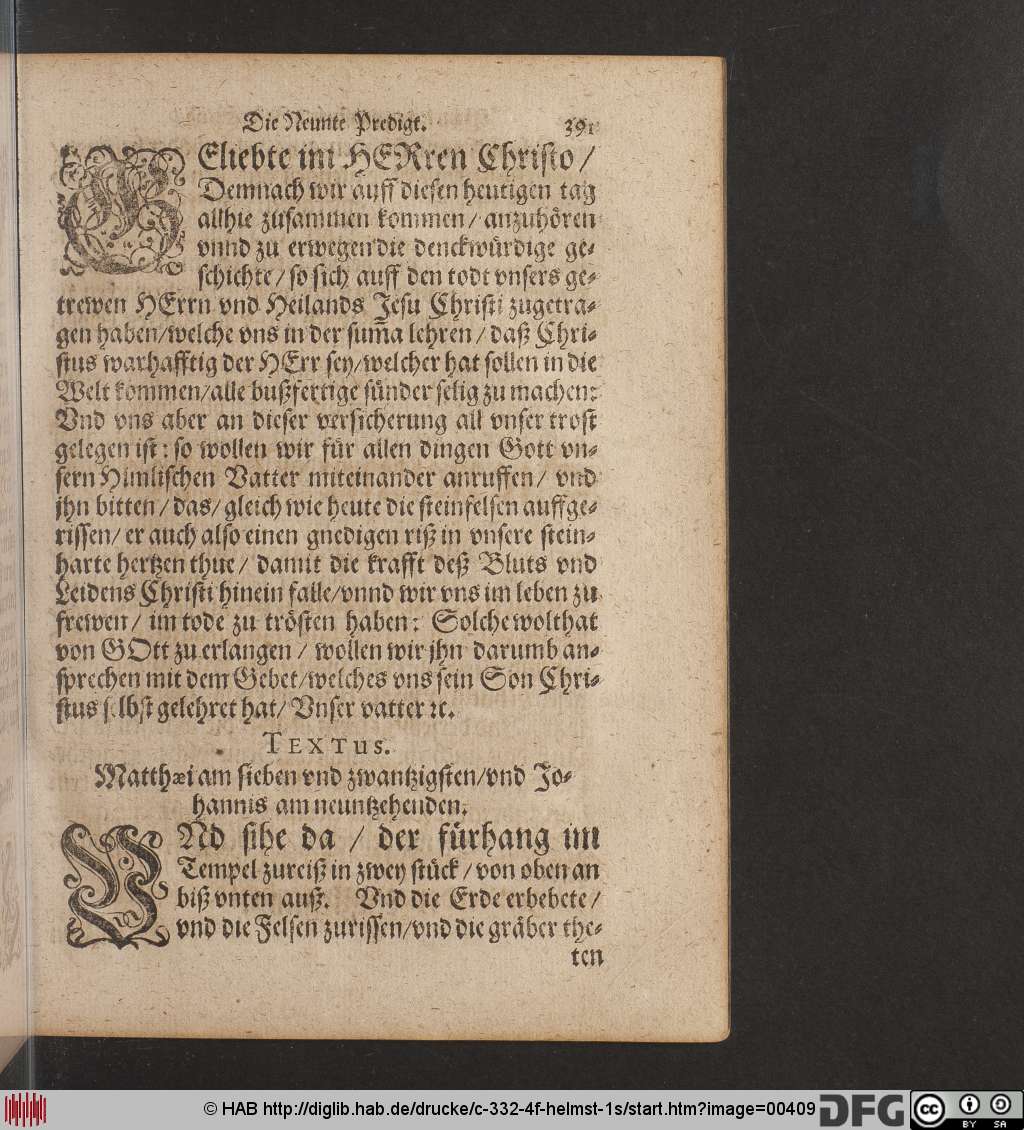 Die Neunte Predigt. 391
GEliebte im HERren Christo /
Demnach wir auff diesen heutigen tag
allhie zusammen kommen / anzuhören
vnnd zu erwegen die denckwürdige ge-
schichte / so sich auff den todt vnsers ge-
trewen HErrn vnd Heilands Jesu Christi zugetra-
gen haben/welche vns in der sum̃a lehren / daß Chri-
stus warhafftig der HErr sey/welcher hat sollen in die
Welt kommen/alle bußfertige sünder selig zu machen:
Vnd vns aber an dieser versicherung all vnser trost
gelegen ist: so wollen wir für allen dingen Gott vn-
sern Himlischen Vatter miteinander anruffen / vnd
jhn bitten / das/ gleich wie heute die steinfelsen auffge-
rissen/ er auch also einen gnedigen riß in vnsere stein-
harte hertzen thue / damit die krafft deß Bluts vnd
Leidens Christi hinein falle/vnnd wir vns im leben zu
frewen / im tode zu trösten haben: Solche wolthat
von GOtt zu erlangen / wollen wir jhn darumb an-
sprechen mit dem Gebet/welches vns sein Son Chri-
stus selbst gelehret hat/ Vnser vatter ꝛc.
TEXTUS.
Matthæi am sieben vnd zwantzigsten/vnd Jo-
hannis am neuntzehenden.
VNd sihe da / der fürhang im
Tempel zureiß in zwey stück / von oben an
biß vnten auß. Vnd die Erde erbebete /
vnd die Felsen zurissen/vnd die gräber the-
ten
© HAB http://diglib.hab.de/drucke/c-332-4f-helmst-1s/start.htm?image=00409
DFG
cc BY SA